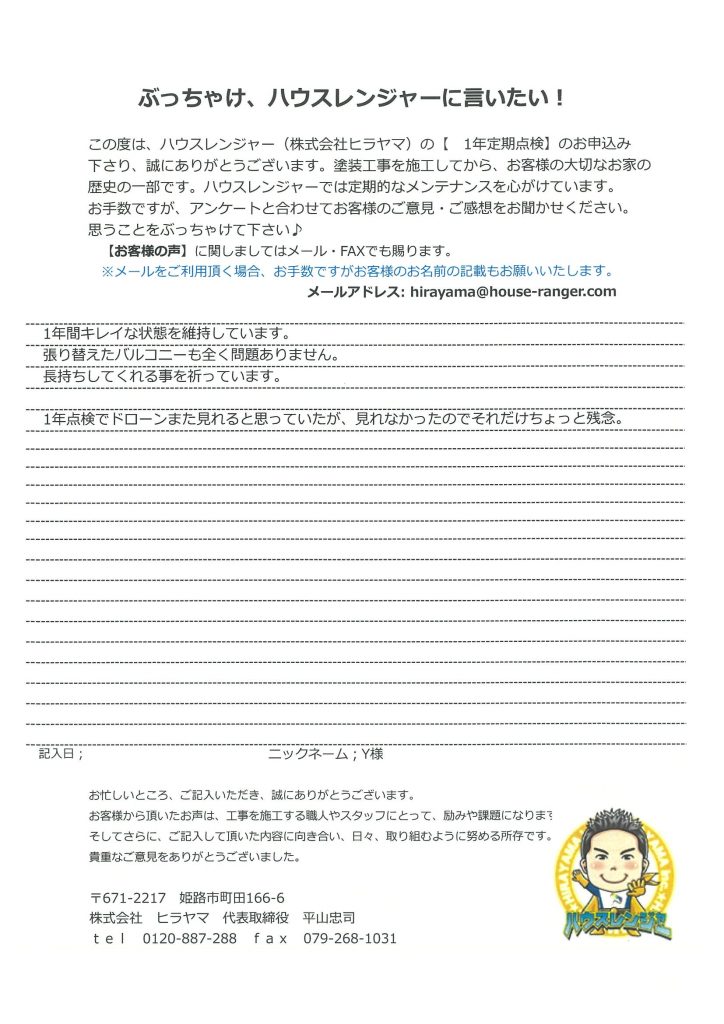 ぶっちゃけ、ハウスレンジャーに言いたい！
この度は、ハウスレンジャー（株式会社ヒラヤマ）の【　1年定期点検】のお申込み
下さり、誠にありがとうございます。塗装工事を施工してから、お客様の大切なお家の
歴史の一部です。ハウスレンジャーでは定期的なメンテナンスを心がけています。
お手数ですが、アンケートと合わせてお客様のご意見・ご感想をお聞かせください。
思うことをぶっちゃけて下さい♪
【お客様の声】に関しましてはメール・FAXでも賜ります。
※メールをご利用頂く場合、お手数ですがお客様のお名前の記載もお願いいたします。
メールアドレス: hirayama@house-ranger.com
1年間キレイな状態を維持しています。
張り替えたバルコニーも全く問題ありません。
長持ちしてくれる事を祈っています。
1年点検でドローンまた見れると思っていたが、見れなかったのでそれだけちょっと残念。
記入日；　ニックネーム；Y様
お忙しいところ、ご記入いただき、誠にありがとうございます。
お客様から頂いたお声は、工事を施工する職人やスタッフにとって、励みや課題になります
そしてさらに、ご記入して頂いた内容に向き合い、日々、取り組むように努める所存です。
貴重なご意見をありがとうございました。
〒671-2217　姫路市町田166-6
株式会社　ヒラヤマ　代表取締役　平山忠司
ｔｅｌ　0120-887-288　ｆａｘ　079-268-1031
ハウスレンジャー